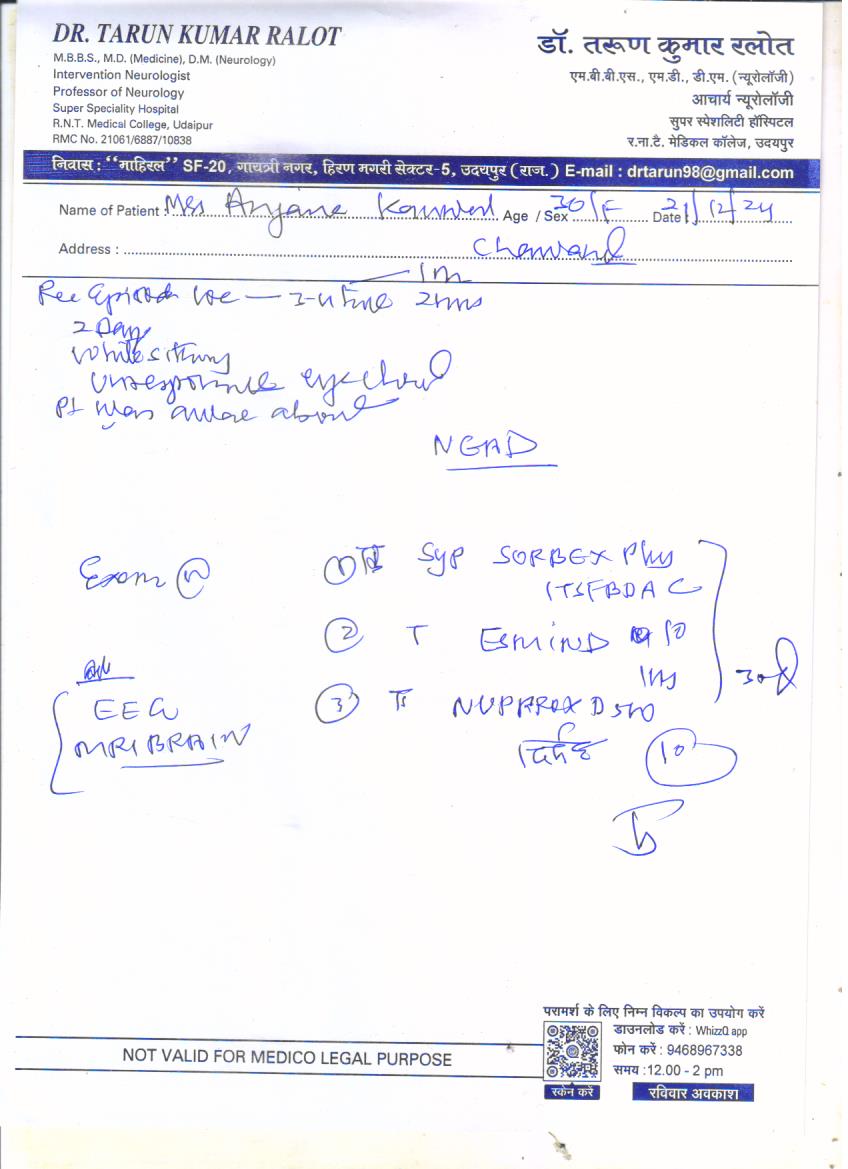 DR. TARUN KUMAR RALOT
M.B.B.S., M.D. (Medicine), D.M. (Neurology)
Intervention Neurologist
Professor of Neurology
Super Speciality Hospital
R.N.T. Medical College, Udaipur
RMC No. 21061/6887/10838
डॉ. तरूण कुमार रलोत
एम.बी.बी.एस., एम.डी., डी.एम. (न्यूरोलॉजी)
आचार्य न्यूरोलॉजी
सुपर स्पेशलिटी हॉस्पिटल
र.ना.टै. मेडिकल कॉलेज, उदयपुर
निवास : “माहिरल” SF-20, गायत्री नगर, हिरण मगरी सेक्टर-5, उदयपुर (राज.) E-mail : drtarun98@gmail.com
Name of Patient : Mrs Age / Sex 30/F Date 21/12/24
Address :
1m
Rec Episode LOC
2 Day
while sitting
unresponsive eye closed
Pt was aware about
NGAD
Exam (N)
① Syp SORBEX Plus
② T ESMIND 10
③ D 500
10
Adv
EEG
MRI BRAIN
NOT VALID FOR MEDICO LEGAL PURPOSE
परामर्श के लिए निम्न विकल्प का उपयोग करें
डाउनलोड करें : WhizzQ app
फोन करें : 9468967338
समय :12.00 - 2 pm
स्केन करें
रविवार अवकाश